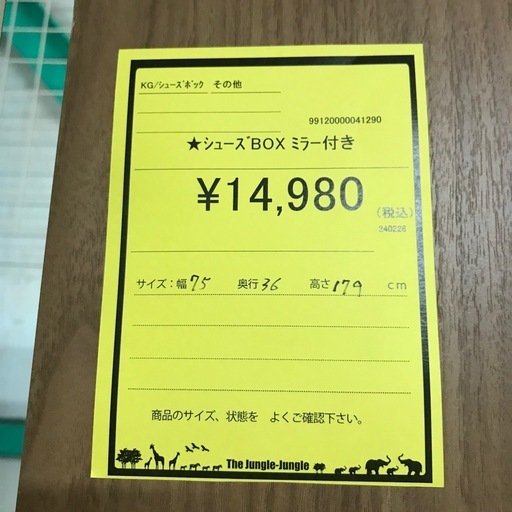 KG/シューズボック その他
99120000041290
★シューズBOX ミラー付き
¥14,980
(税込)
240226
サイズ：幅 75 奥行 36 高さ 179 cm
商品のサイズ、状態を よくご確認下さい。
The Jungle-Jungle